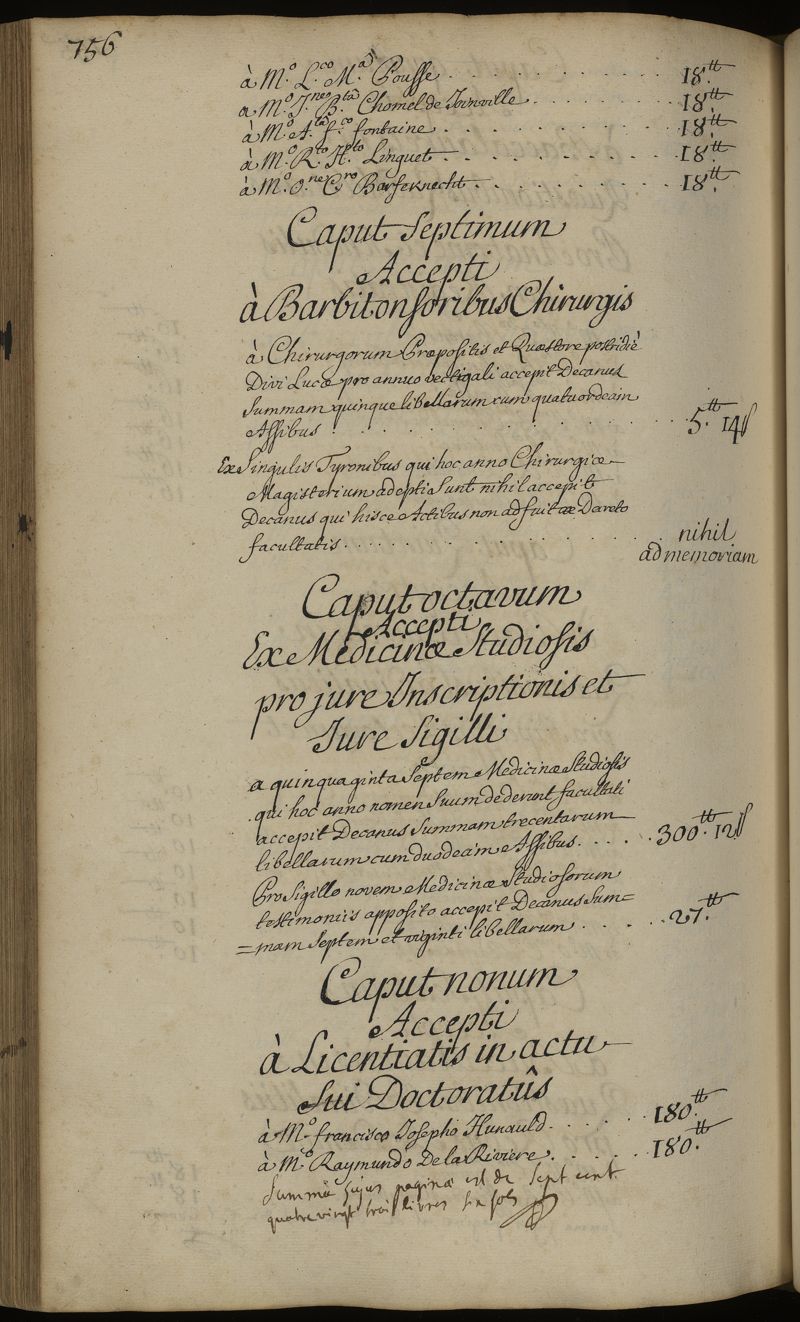 756
à M.º L.co M.a Pousse . . . . . . . . . . . 18.tt
a M.º J.nes B.ta Chomel de Joinville . . . . . . . . 18.tt
à M.º A.ta f.co fontaine . . . . . . . . . . . 18.tt
à M.º R.to H.to Linguet . . . . . . . . . . . 18.tt
à M.º J.ne C.ro Barfeknecht . . . . . . . . . 18.tt
Caput Septimum
Accepti
à Barbitonsoribus Chirurgis
à Chirurgorum Præpositis et Quæstore postridiè
Divi Lucæ pro annuo vectigali accepit Decanus
Summam quinque libellarum cum quatuordecim
Assibus . . . . . . . . . . . 5.tt 14ſ
Ex Singulis Tyronibus qui hoc anno Chirurgiæ
Magisterium adepti Sunt nihil accepit
Decanus qui hisce Actibus non adfuit ex Dareto
facultatis . . . . . . . . . . . nihil
ad memoriam
Caput octavum
Accepti
Ex Medicinæ Studiosis
pro jure Inscriptionis et
Jure Sigilli
a quinquaginta Septem Medicinæ Studiosis
qui hoc anno nomen Suum dederunt facultati
accepit Decanus Summam trecentarum
libellarum cum duodecim Assibus . . . . . 300.tt 12ſ
Pro Sigillo novem Medicinæ Studiosorum
testimoniis apposito accepit Decanus Sum=
=mam Septem et viginti libellarum . . . . . 27.tt
Caput nonum
Accepti
à Licentiatis in actu
Sui Doctoratûs
à M.º francisco Josepho Hunauld . . . . . 180.tt
à M.º Raymundo De la Riviere . . . . . 180.tt
Summa hujus paginæ est de Sept cent
quatre vingt trois livres six sols